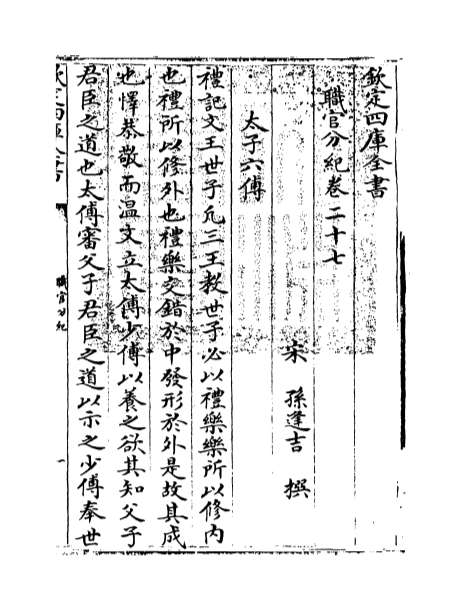 欽定四庫全書
職官分紀卷二十七
宋 孫逢吉 撰
太子六傅
禮記文王世子凡三王教世子必以禮樂樂所以修內
也禮所以修外也禮樂交錯於中發形於外是故其成
也懌恭敬而温文立太傅少傅以養之欲其知父子
君臣之道也太傅審父子君臣之道以示之少傅奉世
欽定四庫全書
職官分紀
一